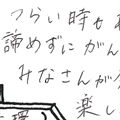 つらい時も
諦めずにがん
みなさんが
楽し